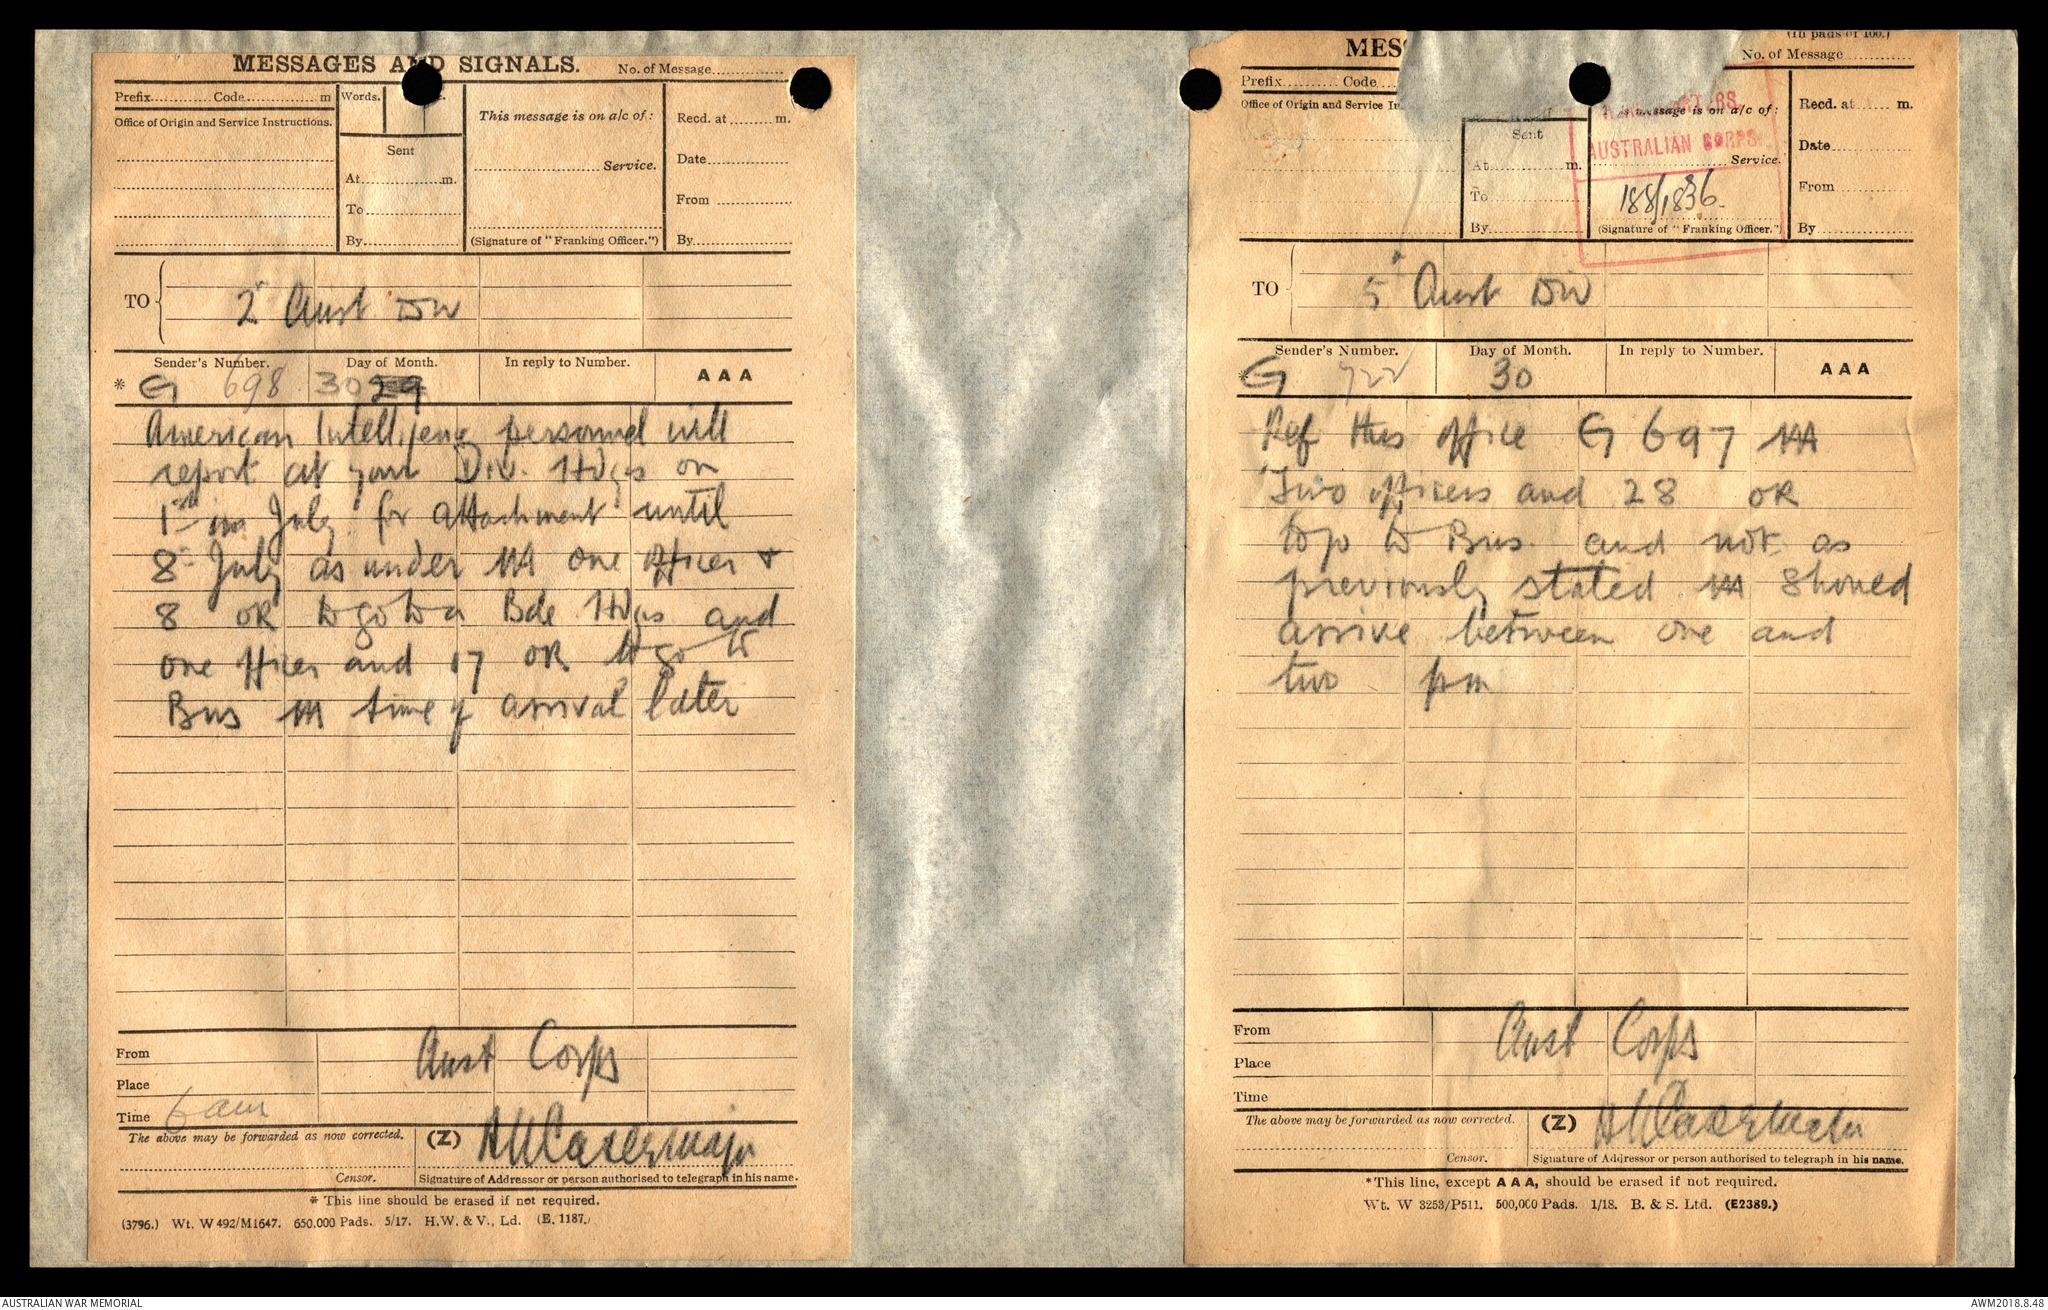 MESSAGES AND SIGNALS.
No. of Message
Prefix Code m
Words.
Office of Origin and Service Instructions.
Sent
At m.
To
By
This message is on a/c of:
Service.
(Signature of "Franking Officer.")
Recd. at m.
Date
From
By
TO 2d Aust Div
Sender's Number. Day of Month. In reply to Number. AAA
* G 698 30 29
American Intelligence personnel will
report at your Div. Hdqs on
1st July for attachment until
8th July as under AAA one officer +
8 OR to go to a Bde Hdqs and
one officer and 17 OR to go to
Bns AAA time of arrival later
From Aust Corps
Place
Time 6 am
The above may be forwarded as now corrected.
(Z)
Major
Censor.
Signature of Addressor or person authorised to telegraph in his name.
* This line should be erased if not required.
(3796.) Wt. W 492/M1647. 650,000 Pads. 5/17. H.W. & V., Ld. (E. 1187.)
MES
(In pads of 100.)
No. of Message
Prefix Code
Office of Origin and Service In
Sent
At m.
To
By
This message is on a/c of:
Service.
(Signature of "Franking Officer.")
AUSTRALIAN CORPS
188/1836.
Recd. at m.
Date
From
By
TO 5th Aust Div
Sender's Number. Day of Month. In reply to Number. AAA
* G 722 30
Ref this office G 697 AAA
Two officers and 28 OR
to go to Bns. and not as
previously stated AAA Should
arrive between one and
two pm
From Aust Corps
Place
Time
The above may be forwarded as now corrected.
(Z)
Major
Censor.
Signature of Addressor or person authorised to telegraph in his name.
*This line, except AAA, should be erased if not required.
Wt. W 3253/P511. 500,000 Pads. 1/18. B. & S. Ltd. (E2389.)
AUSTRALIAN WAR MEMORIAL
AWM2018.8.48